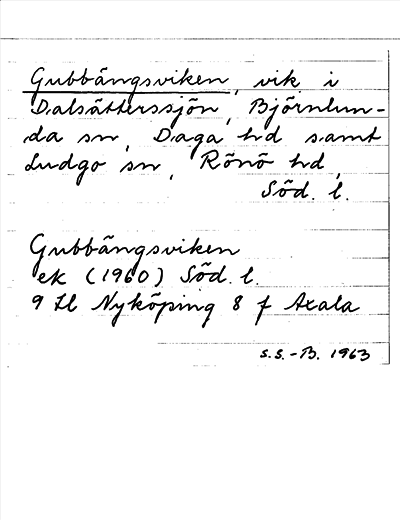 Gubbängsviken, vik i
Dalsätterssjön, Björnlun-
da sn, Daga hd samt
Ludgo sn, Rönö hd,
Söd. l.
Gubbängsviken
ek (1960) Söd. l.
9 H Nyköping 8 f Axala
S.S.-B. 1963